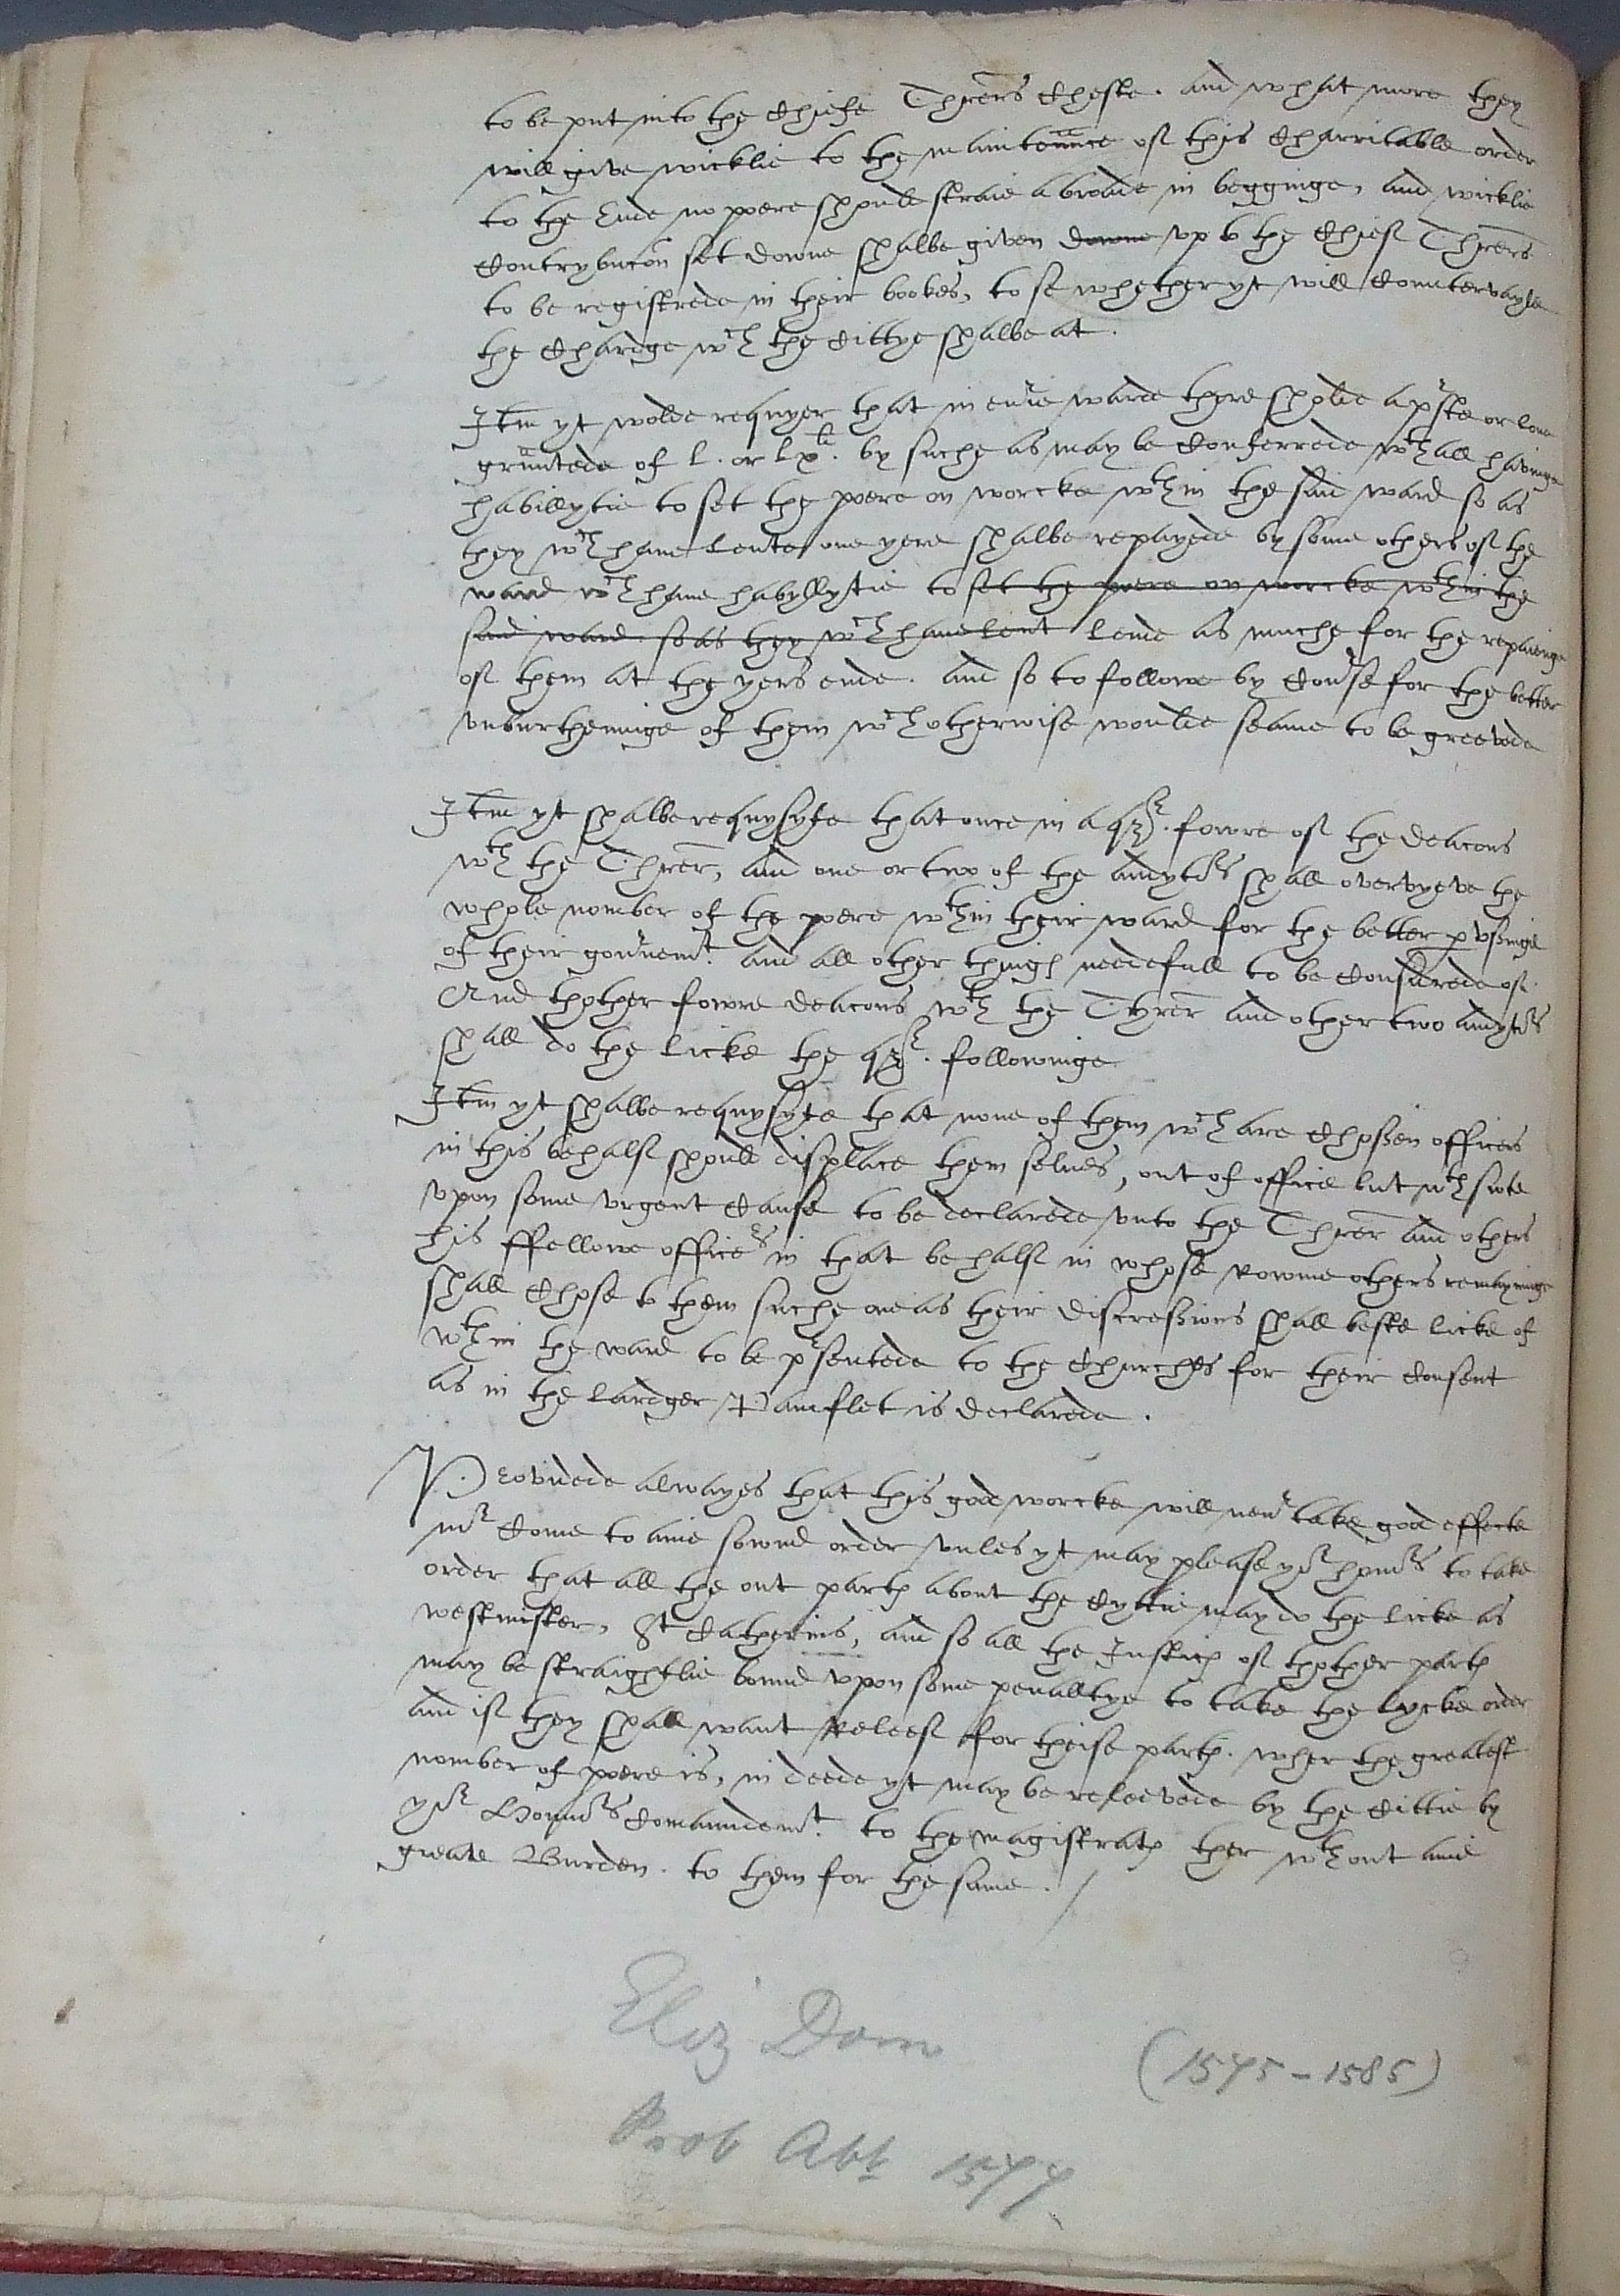 to be put into the Chiefe Thrers Cheste. and what more they
will give wicklie to the maintenance of this Charritable order
to the Ende no poere shoulde straie abroade in begginge, and wicklie
Contrybucon set downe shalbe given downe up to the Chief Thrers
to be registrede in their bookes, to se whether yt will Countervayle
the Chardge wch the Cittye shalbe at.
Itm yt wolde requyer that in eu'ie warde there sholde a pste or lone
grauntede of l. or lx li. by suche as may be Conferrede wthall havinge
habillytie to set the poere on worcke wthin the said ward so as
they wch haue lente one yere shalbe repayede by some others of the
ward wch haue habyllytie to set the poere on worcke wthin the
said ward. so as they wch haue lent lende as muche for the repaienge
of them at the yers ende. And so to followe by Course for the better
unburtheninge of them wch otherwise woulde seame to be greevede
Itm yt shalbe requysyte that once in a qter. fowre of the deacons
wth the Threr, and one or two of the Audytors shall overvyeve the
whole nomber of the poere wthin their ward for the better pvsinge
of their gouernemt. and all other things needefull to be Considrede of.
And thother fowre deacons wth the Threr and other two audytors
shall do the licke the qter. followinge
Itm yt shalbe requysyte that none of them wch are Chossen officers
in this behalf should displace them selues, out of office but wth sute
vpon some vrgent Cause to be declarede vnto the Threr and others
his ffellowe officers in that behalf in whose rowme others remayninge
shall Chose to them suche one as their discressions shall beste licke of
wthin the ward to be p'sentede to the Churches for their Consent
as in the lardger Pamflet is declarede.
Provided alwayes that this good worcke will neu' take good effecte
nor Come to anie sownd order vnles yt may please yor honors to take
order that all the out parts about the Cyttie may do the licke as
westmister, St Catherins, and so all the Justics of thother parts
may be straightlie bound vpon some penalltye to take the lycke order
and if they shall want releef for theise parts. wher the greatest
nomber of poere is, in deede yt may be releevede by the Cittie by
yor Honnors Comaundemt. to the magistrats ther wthout anie
greate Burden. to them for the same. /
Eliz Dom
(1575-1585)
Prob Abt 1577